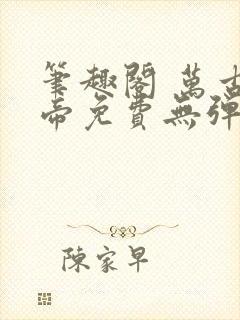 筆趣閣 萬古
帝免費無彈
陳家早